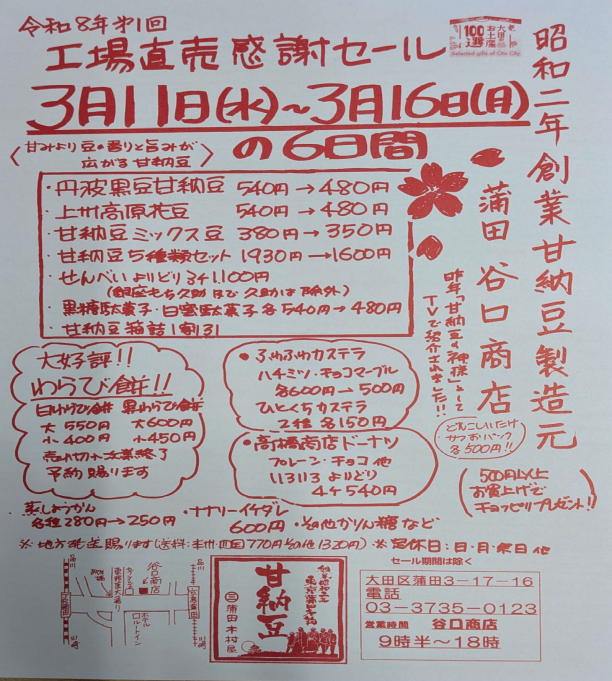 令和8年第1回
工場直売感謝セール
大田の
お土産
100選
Selected gifts of Ota City
3月11日(水)〜3月16日(月)
の6日間
昭和二年創業甘納豆製造元
蒲田 谷口商店
昨年「甘納豆の神様」として
TVで紹介されました!!
〈甘みより豆の香りと旨みが
広がる甘納豆〉
・丹波黒豆甘納豆 540円→480円
・上州高原花豆 540円→480円
・甘納豆ミックス豆 380円→350円
・甘納豆5種類セット 1930円→1600円
・せんべいよりどり3ヶ1,100円
(銀座もち久助ほど久助は除外)
・黒糖駄菓子・白雪駄菓子各540円→480円
・甘納豆箱詰1割引
大好評!!
わらび餅!!
白わらび餅 黒わらび餅
大550円 大600円
小400円 小450円
売り切れ次第終了
予約賜ります
・ふわふわカステラ
ハチミツ・チョコマーブル
各600円→500円
ひとくちカステラ
2種 各150円
・高橋商店ドーナツ
プレーン・チョコ他
いろいろよりどり
4ヶ540円
どんこしいたけ
各500円!!
500円以上
お買上げで
チョッピリプレゼント!!
・蒸しようかん
各種280円→250円
・ナナリーイケダレ
600円
・その他かりん糖など
※地方発送賜ります(送料:本州・四国770円その他1320円)
※定休日:日・月・祭日他
セール期間は除く
谷口商店
ホテル
ルートイン
甘納豆
蒲田木村屋
大田区蒲田3-17-16
電話
03-3735-0123
営業時間 谷口商店
9時半〜18時